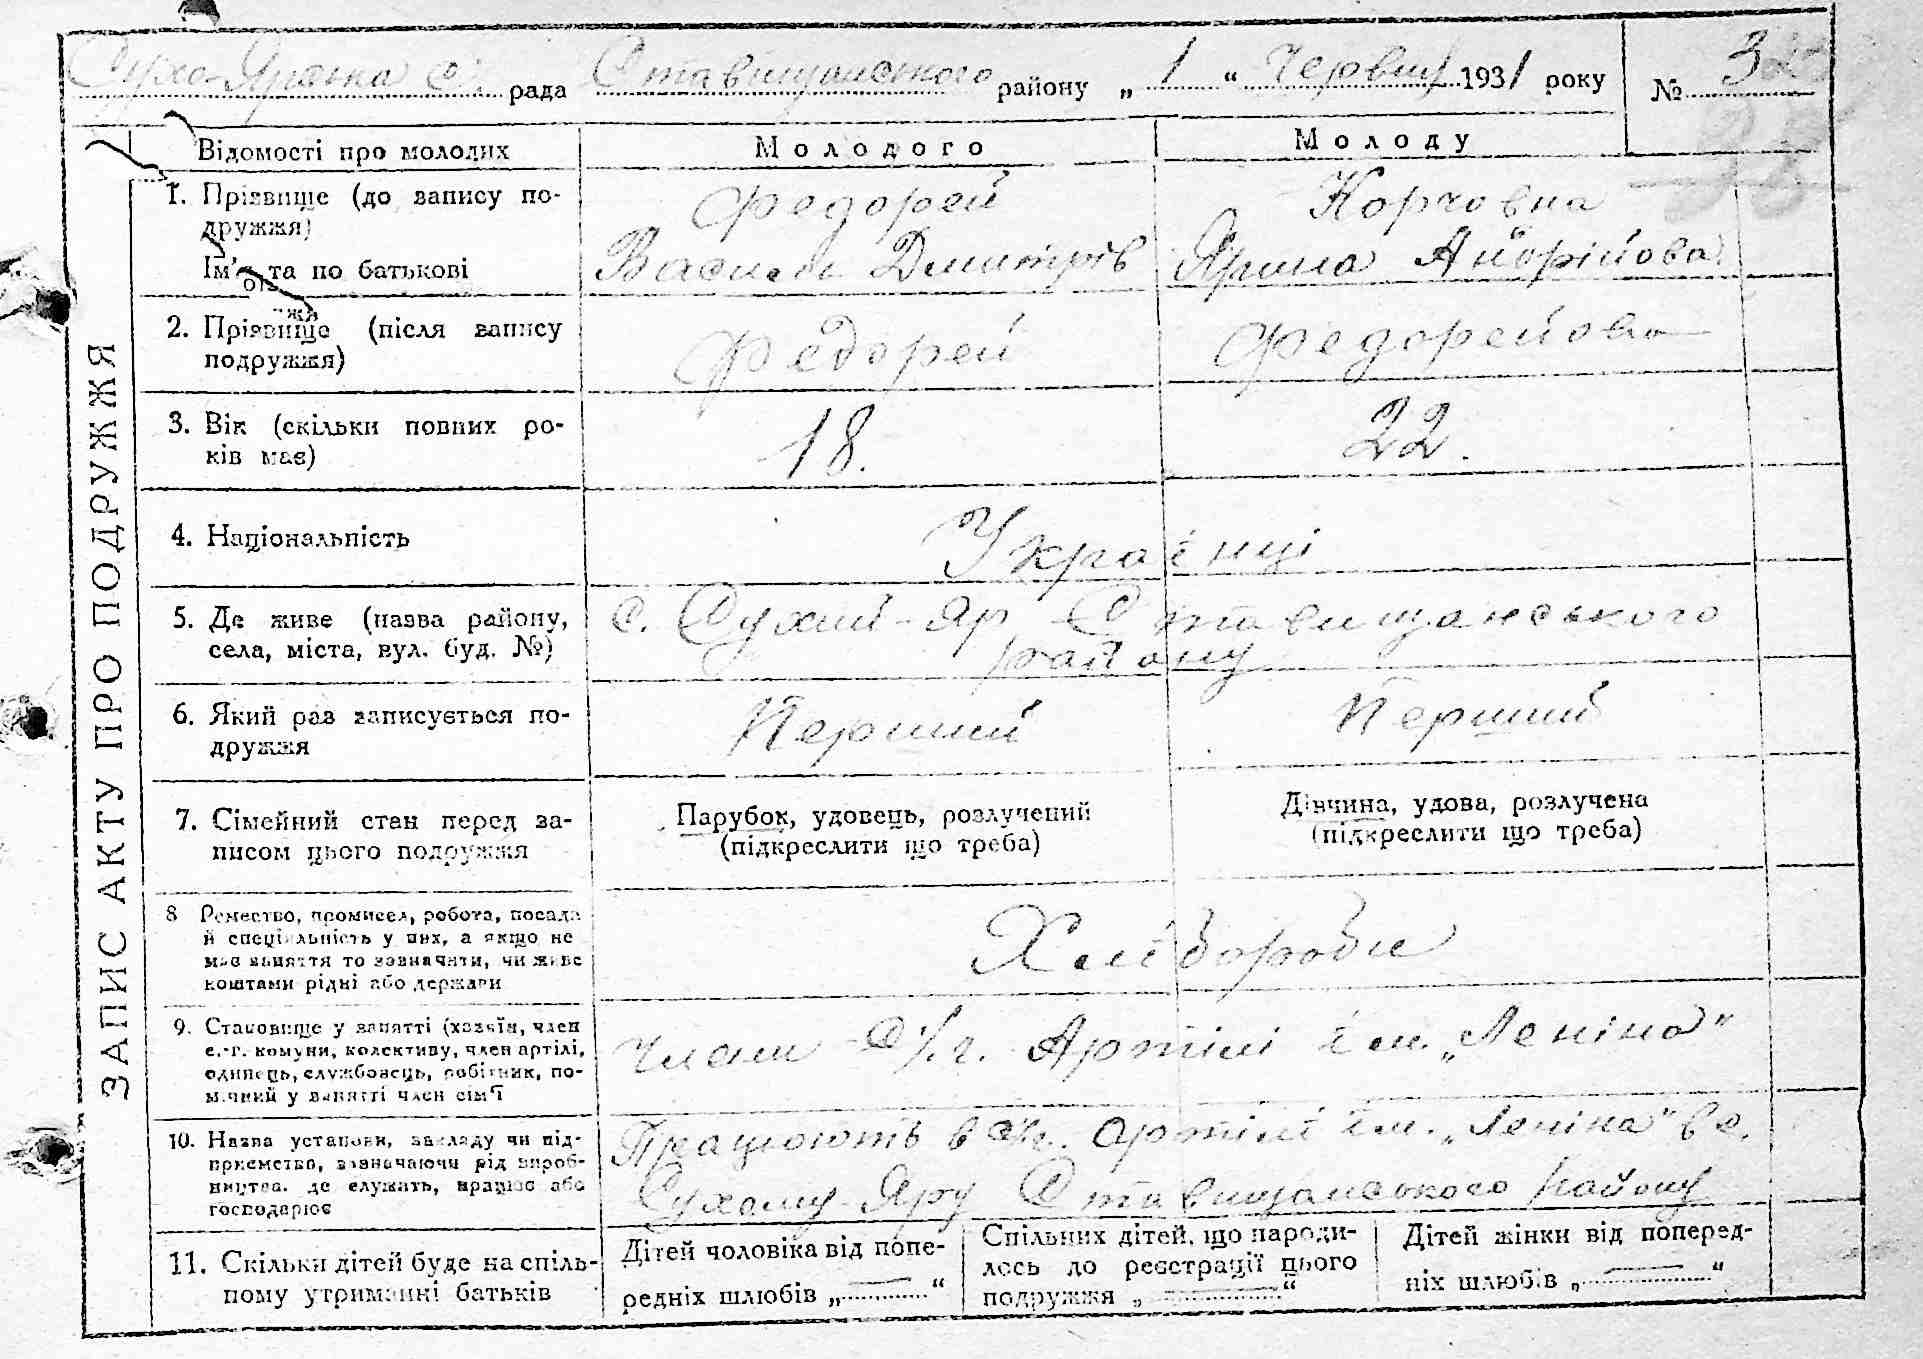 Сухо-Ярська с. рада Ставищанського району „ 1 “ Червня 1931 року № 3
ЗАПИС АКТУ ПРО ПОДРУЖЖЯ
Відомості про молодих
Молодого
Молоду
1. Прізвище (до запису по-
дружжя)
Ім'я та по батькові
Федорей
Василь Дмитрів
Корчовна
Ярина Андрійова
2. Прізвище (після запису
подружжя)
Федорей
Федорейова
3. Вік (скільки повних ро-
ків має)
18.
22.
4. Національність
Українці
5. Де живе (назва району,
села, міста, вул. буд. №)
с. Сухий-Яр Ставищанського
району
6. Який раз записується по-
дружжя
Перший
Перший
7. Сімейний стан перед за-
писом цього подружжя
Парубок, удовець, розлучений
(підкреслити що треба)
Дівчина, удова, розлучена
(підкреслити що треба)
8 Ремество, промисел, робота, посада
й спеціяльність у них, а якщо не
має заняття то зазначити, чи живе
коштами рідні або держави
Хлібороби
9. Становище у занятті (хазяїн, член
с.-г. комуни, колективу, член артілі,
одинець, службовець, робітник, по-
мічний у занятті член сім'ї
члени С/г. Артілі ім. „Леніна"
10. Назва установи, закладу чи під-
приємства, зазначаючи рід вироб-
ництва. де служать, працює або
господарює
Працюють в с/г. артілі ім. „Леніна" в с.
Сухому-Яру Ставищанського району
11. Скільки дітей буде на спіль-
ному утриманні батьків
Дітей чоловіка від попе-
редніх шлюбів „ — “
Спільних дітей, що народи-
лось до реєстрації цього
подружжя „ — “
Дітей жінки від поперед-
ніх шлюбів „ — “